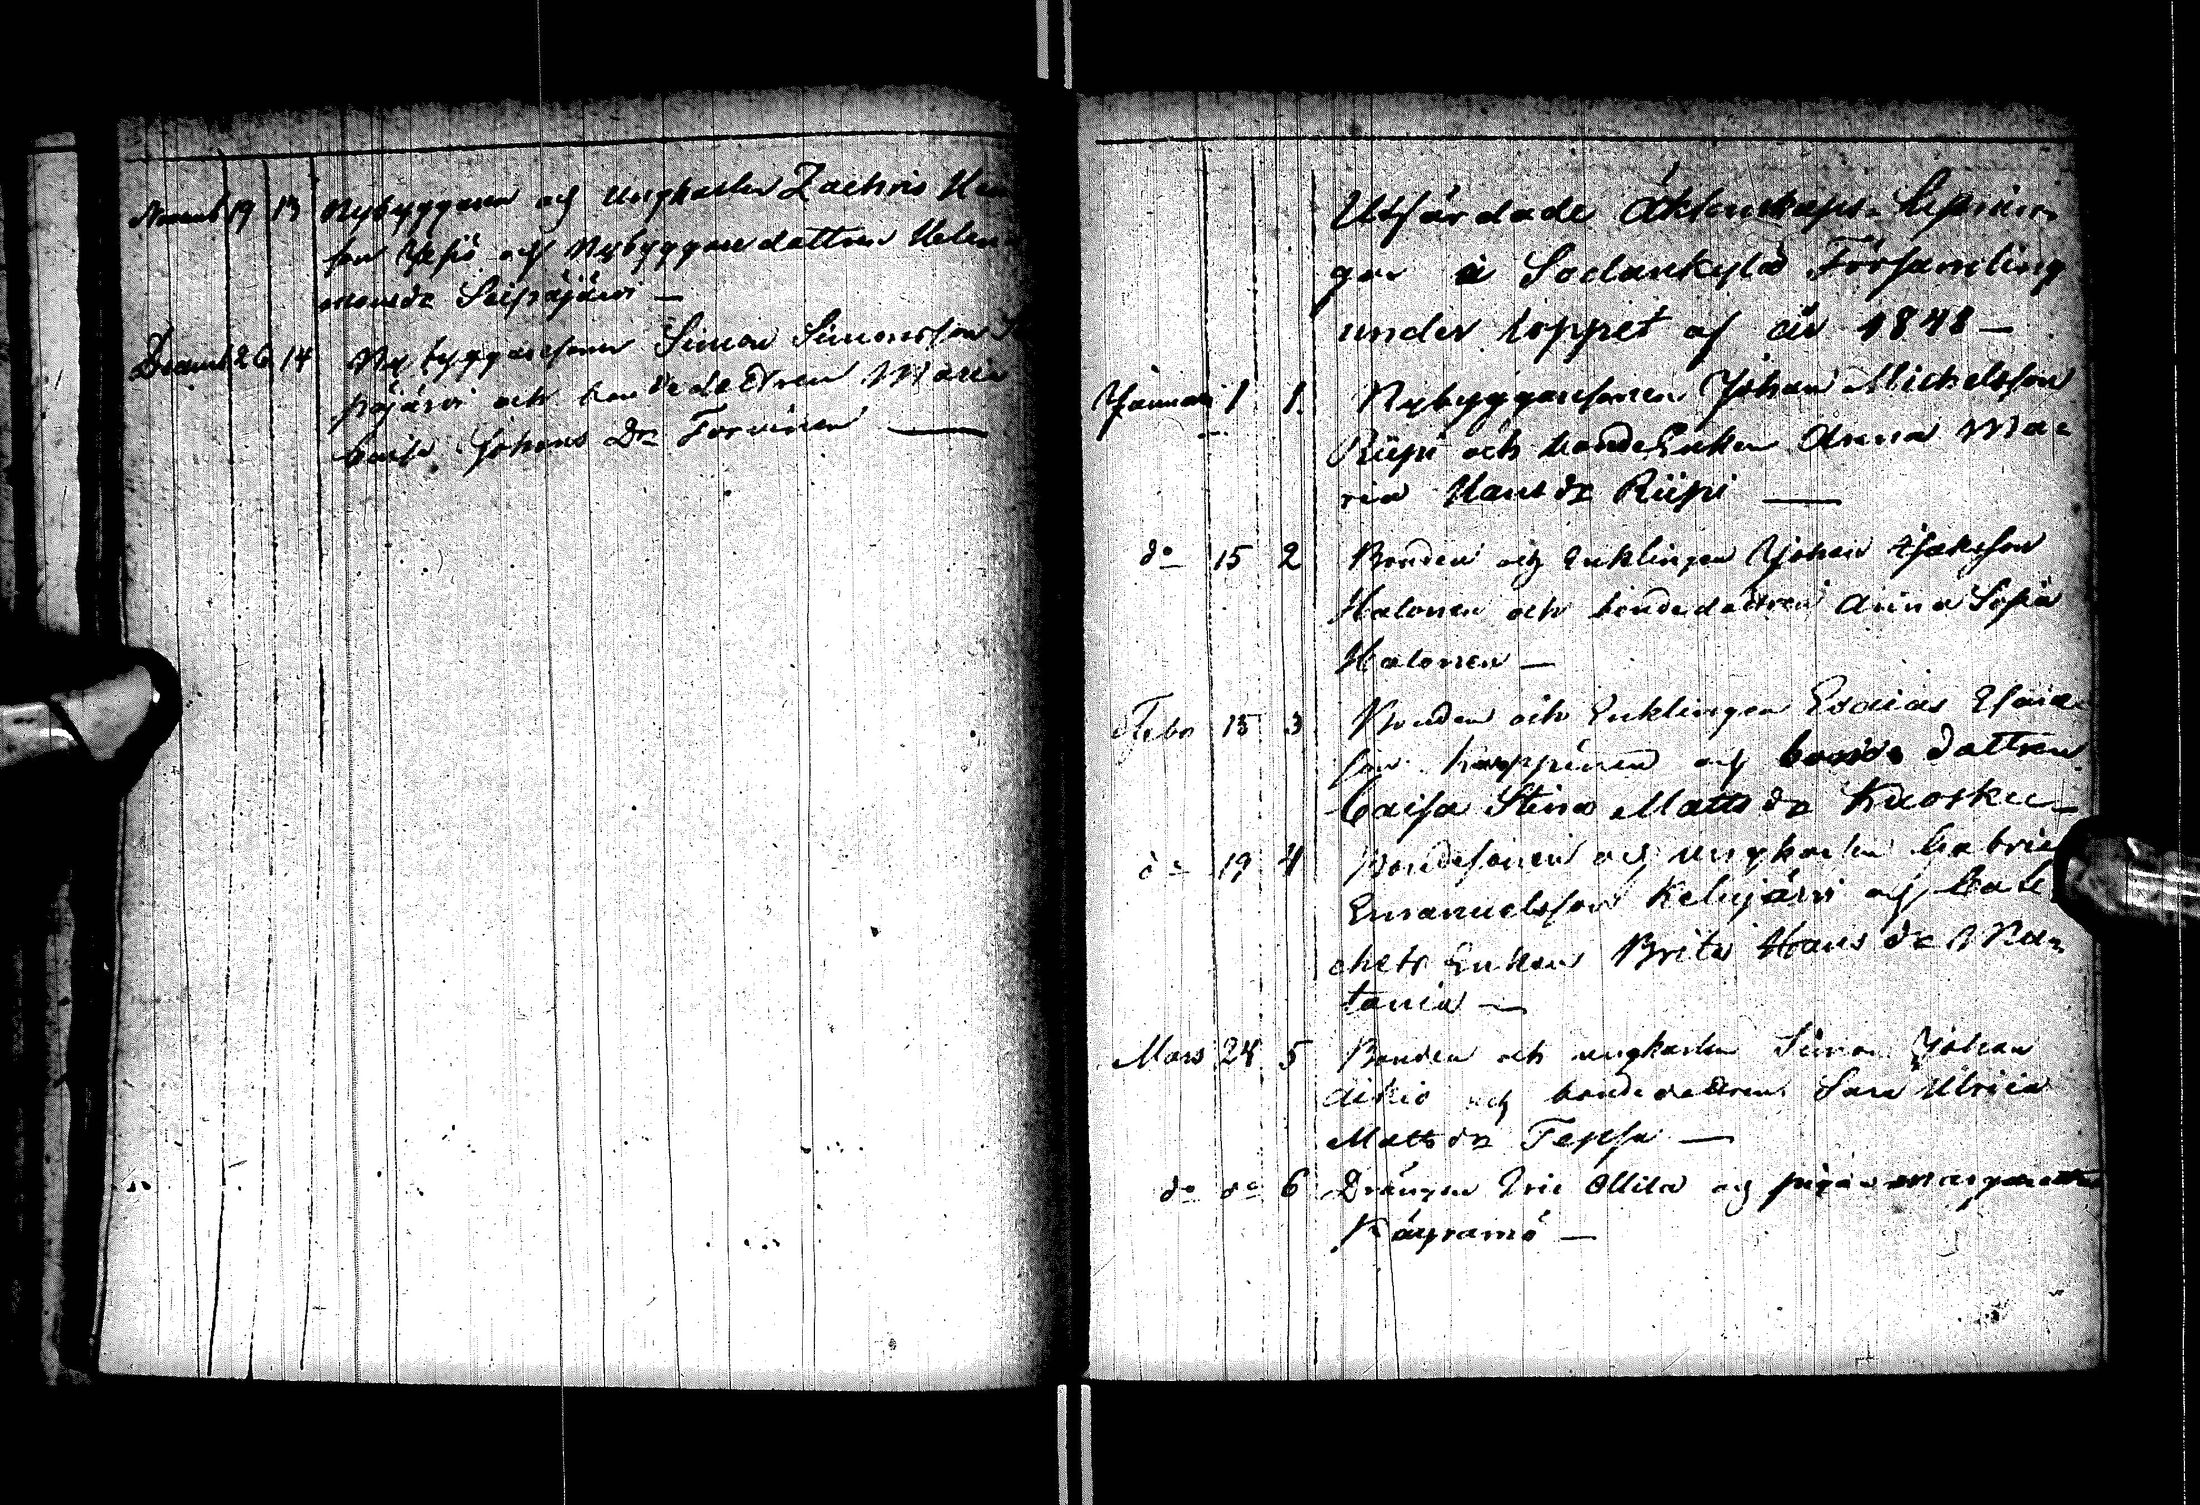 Novemb 19 13 Nybyggaren och Ungkarlen Zachris
son och Nybyggaredattren Helena
Monsdr Seipäjärvi —
Decemb 26 14 Nybyggaresonen Simon Simonsson
päjärvi och bondedottren Maria
Caisa Johans Dr Torvinen —
Utfärdade Äktenskaps-Lysnin-
gar i Sodankylä Församling
under loppet af år 1848 —
Januari 1 1. Nybyggaresonen Johan Michelsson
Riipi och bondeEnkan Anna Ma-
ria Hansdr Riipi —
do 15 2 Bonden och Enklingen Johan Isaksson
Halonen och bondedottren Anna Sofia
Halonen —
Febr 15 3 Bonden och Enklingen Esaias Esaia-
son och bonde dottren
Caisa Stina Mattsdr Kuosku —
do 19 4 Bondesonen och ungkarlen Gabriel
Emanuelsson Kelujärvi och
Enkan Brita Hansdr Ma-
tania —
Mars 24 5 Bonden och ungkarlen Simon Johan
Aikio och bondedottren Sara Ulrica
Mattsdr Tepsa —
do do 6 Drängen Eric Ollila och pigan Margaretha
Käyrämö —